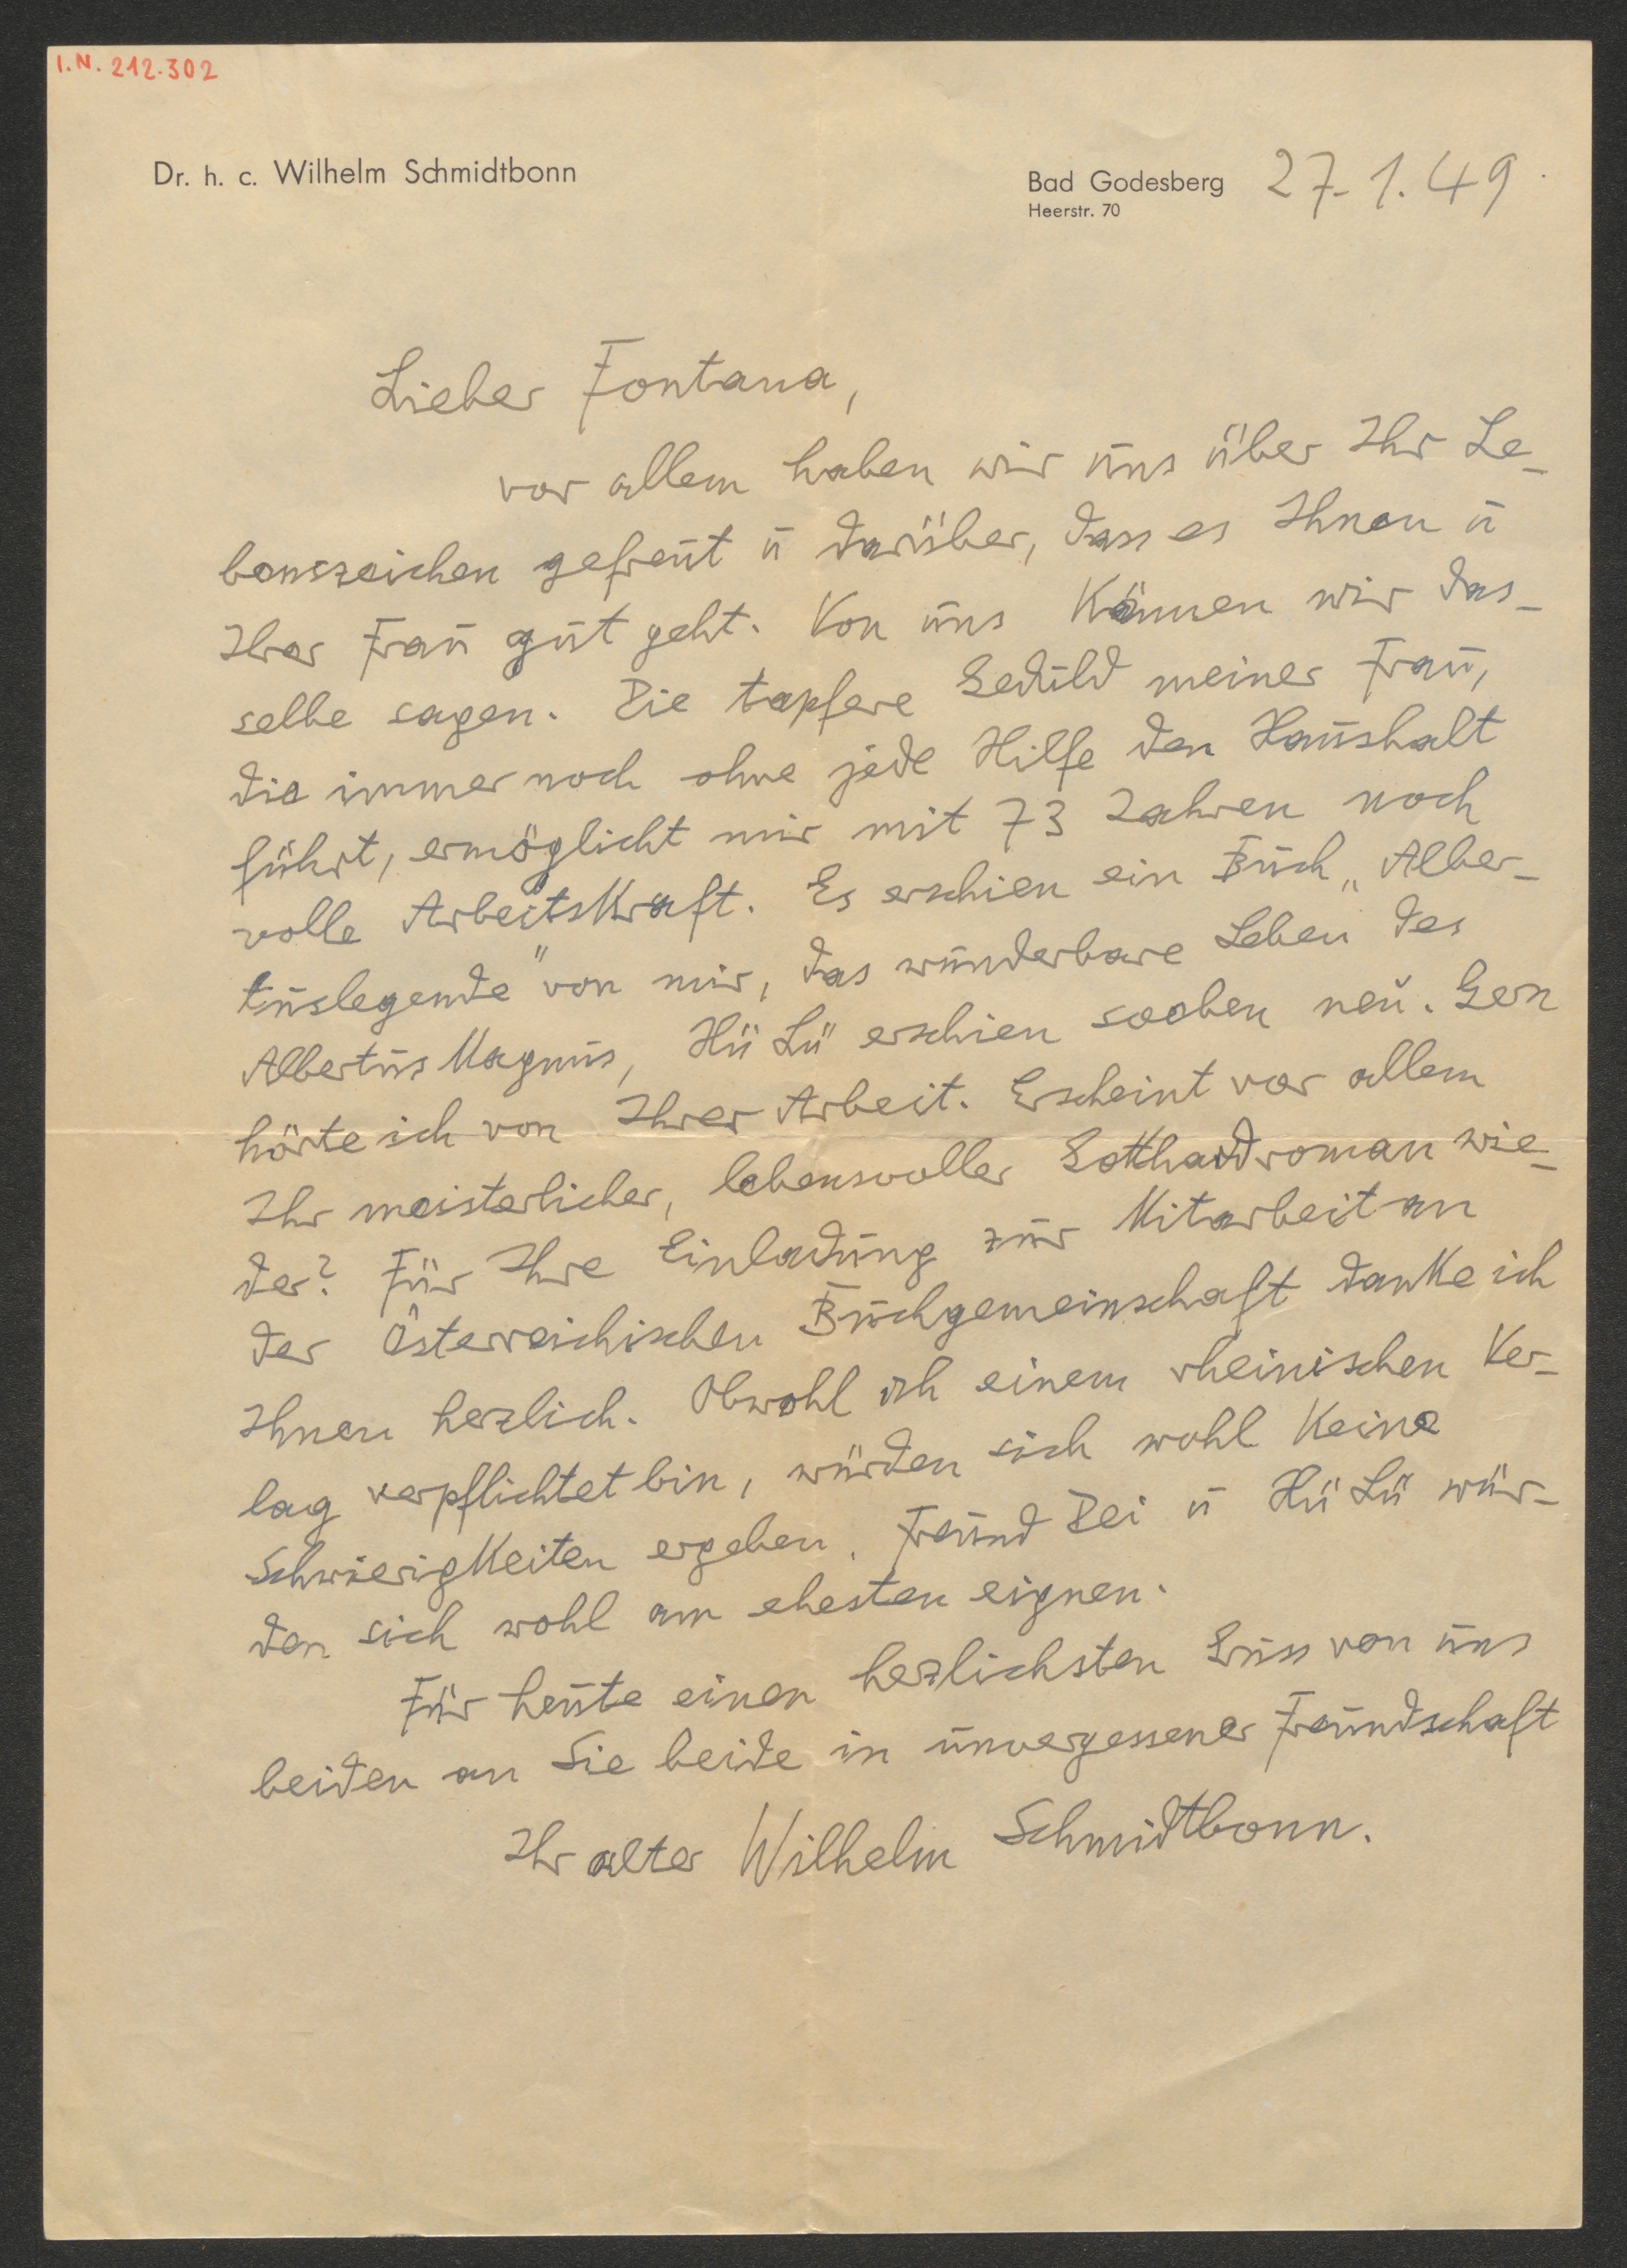 I.N. 212.302
Dr. h. c. Wilhelm Schmidtbonn
Bad Godesberg 27.1.49
Heerstr. 70
Lieber Fontana,
vor allem haben wir uns über Ihr Le-
benszeichen gefreut u darüber, dass es Ihnen u
Ihrer Frau gut geht. Von uns Können wir das-
selbe sagen. Die tapfere Geduld meiner Frau,
die immer noch ohne jede Hilfe den Haushalt
führt, ermöglicht mir mit 73 Jahren noch
volle Arbeitskraft. Es erschien ein Buch „Alber-
tuslegende" von mir, das wunderbare Leben des
Albertus Magnus, Hü Lü erschien soeben neu. Gern
hörte ich von Ihrer Arbeit. Erscheint vor allem
Ihr meisterlicher, lebensvoller Gotthardroman wie-
der? Für Ihre Einladung zur Mitarbeit an
der Österreichischen Buchgemeinschaft danke ich
Ihnen herzlich. Obwohl ich einem rheinischen Ver-
lag verpflichtet bin, würden sich wohl Keine
Schwierigkeiten ergeben. Freund Dei u Hü Lü wür-
den sich wohl am ehesten eignen.
Für heute einen herzlichsten Gruss von uns
beiden an Sie beide in unvergessener Freundschaft
Ihr alter Wilhelm Schmidtbonn.